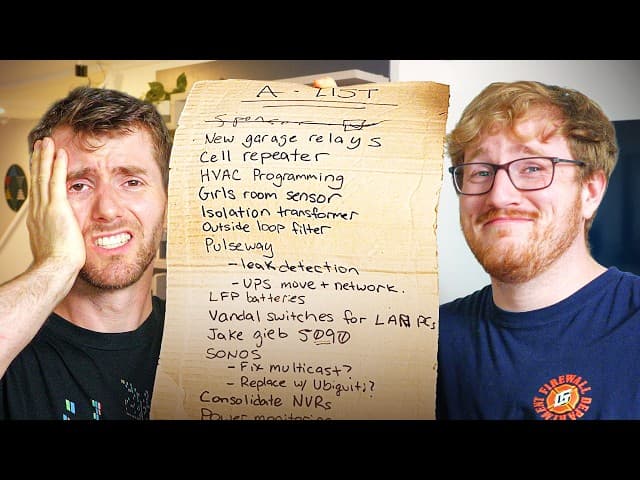 A - LIST
New garage relays
Cell repeater
HVAC Programming
Girls room sensor
Isolation transformer
Outside loop filter
Pulseway
- leak detection
- UPS move + network.
LFP batteries
Vandal switches for LAN PCs
Jake gieb 5090
SONOS
- Fix multicast?
- Replace w/ Ubiquiti?
Consolidate NVRs
Power monitoring
FIREWALL
DEPARTMENT